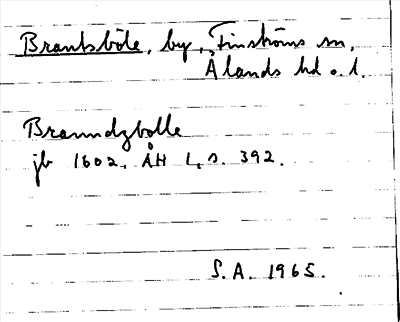 Brantsböle, by, Finströms sn,
Ålands hd o. l.
Branndzbolle
jb 1602, ÅH 1, s. 392.
S.A. 1965.